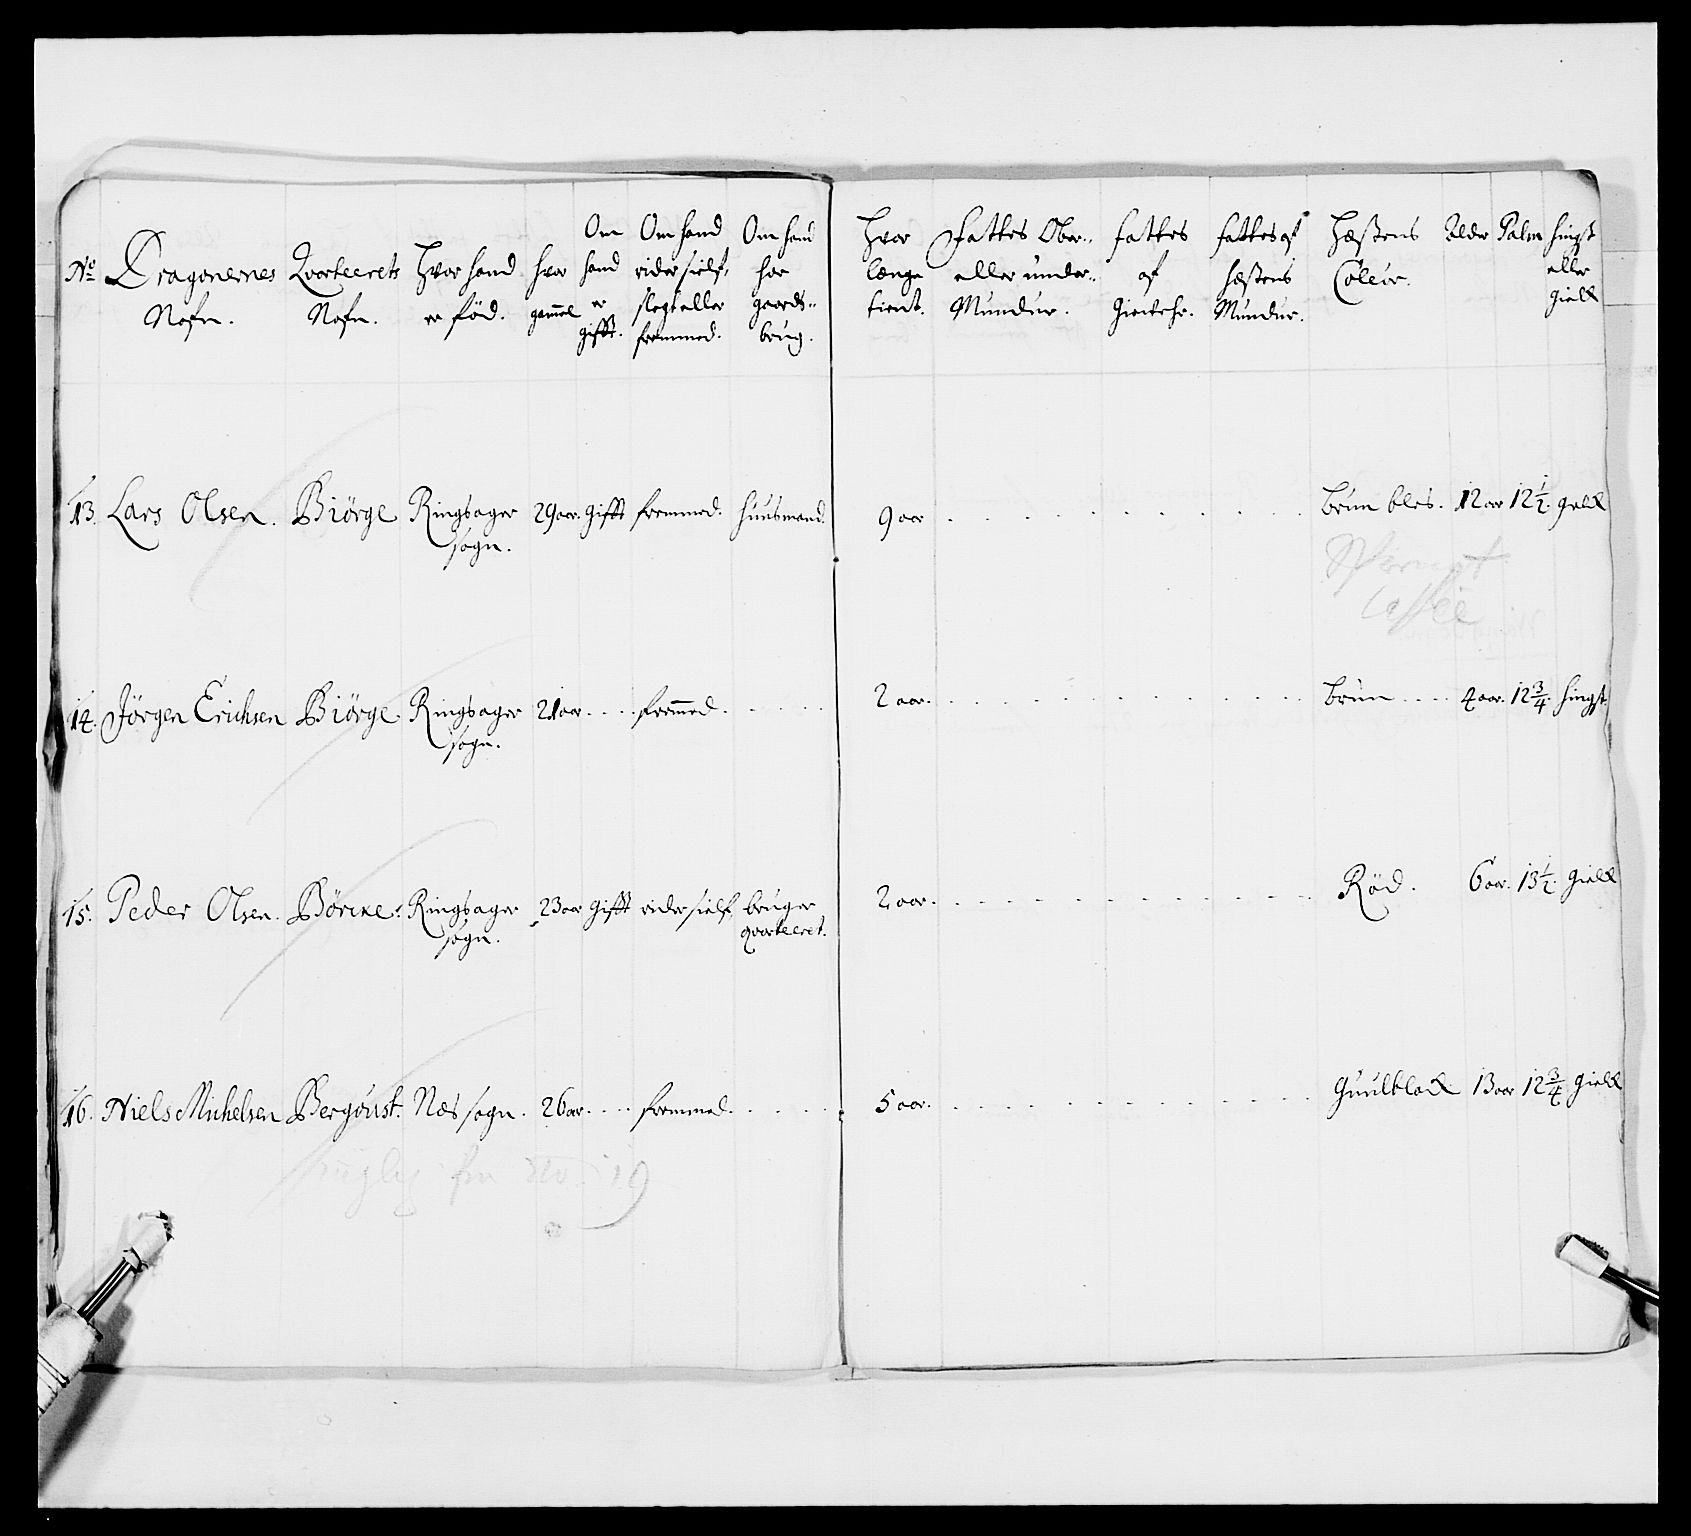 No Dragonernes Nafn. Qvarteerets Nafn. Hvor hand er född. hvor gammel Om hand er gifft. Om hand rider sielf, slegt eller fremmed. Om hand har gaards-brug. Hvor længe tient. Fattes Ober- eller under- Mundur. fattes af Giewehr. fattes af hæstens Mundur. Hæstens Coleur. Alder Palm hingst eller gield
13. Lars Olsen. Biörge Ringsager 29 aar. gifft fremmed. huusmand. 9 aar . . . . . . . . . . . . brun bles. 12 aar 12½. gield
sogn.
14. Jörgen Erichsen Biörge. Ringsager 21 aar. . . . fremmed. . . . . . 2 aar. . . . . . . . . . . . . brun . . . . 4 aar. 12¾. hingst
sogn.
15. Peder Olsen. Börcke. Ringsager 23 aar gifft rider sielf, bruger 2 aar. . . . . . . . . . . . . Röd. 6 aar. 13½. gield
sogn. qvarteeret.
16. Niels Michelsen Bergoust. Næs sogn. 26 aar. . . . fremmed. . . . . . 5 aar. . . . . . . . . . . . . Guulblack 13 aar 12¾ gield